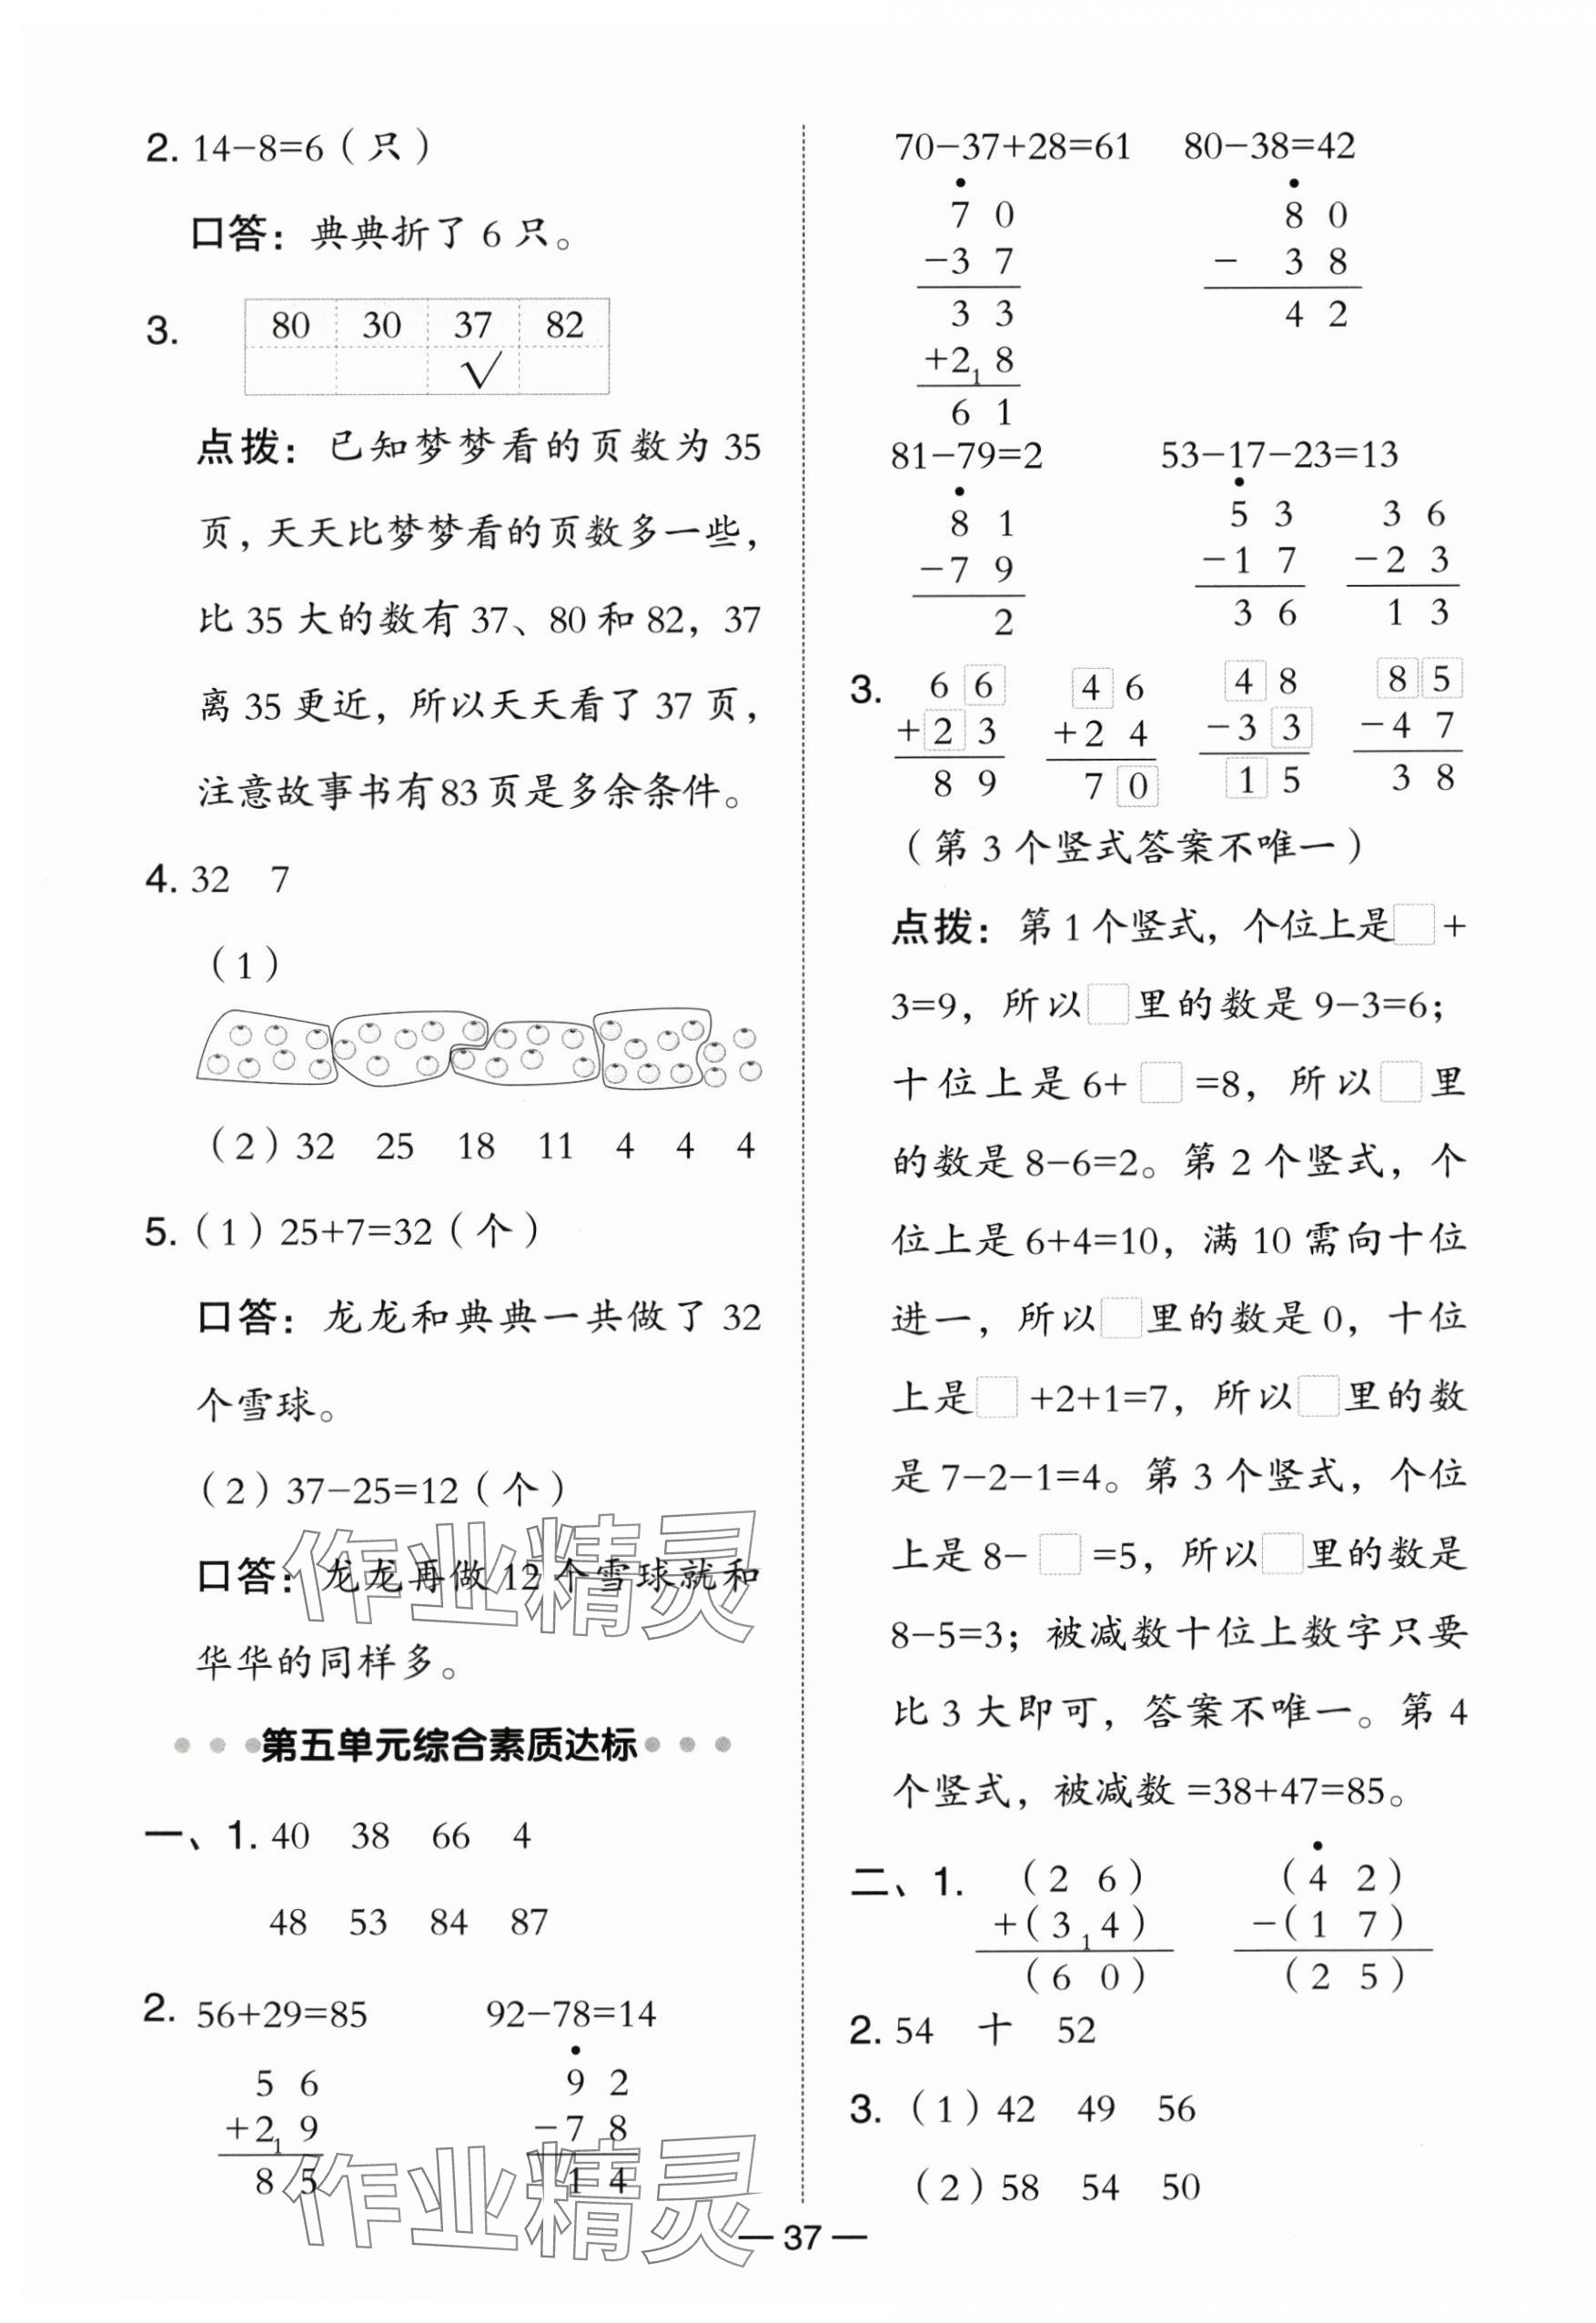 2. 14−8=6（只）
口答：典典折了 6 只。
3.
80 30 37 82
√
点拨：已知梦梦看的页数为 35
页，天天比梦梦看的页数多一些，
比 35 大的数有 37、80 和 82，37
离 35 更近，所以天天看了 37 页，
注意故事书有83页是多余条件。
4. 32 7
（1）
（2）32 25 18 11 4 4 4
5.（1）25+7=32（个）
口答：龙龙和典典一共做了 32
个雪球。
（2）37−25=12（个）
口答：龙龙再做 12 个雪球就和
华华的同样多。
第五单元综合素质达标
一、1. 40 38 66 4
48 53 84 87
2. 56+29=85 92−78=14
5 6
+2₁9
8 5
9 2
−7 8
1 4
70−37+28=61 80−38=42
7 0
−3 7
3 3
+2₁8
6 1
8 0
− 3 8
4 2
81−79=2 53−17−23=13
8 1
−7 9
2
5 3
−1 7
3 6
3 6
−2 3
1 3
3.
6 6
+2 3
8 9
4 6
+2 4
7 0
4 8
−3 3
1 5
8 5
−4 7
3 8
（第 3 个竖式答案不唯一）
点拨：第 1 个竖式，个位上是□+
3=9，所以□里的数是 9−3=6；
十位上是 6+□=8，所以□里
的数是 8−6=2。第 2 个竖式，个
位上是 6+4=10，满 10 需向十位
进一，所以□里的数是 0，十位
上是□+2+1=7，所以□里的数
是 7−2−1=4。第 3 个竖式，个位
上是 8−□=5，所以□里的数是
8−5=3；被减数十位上数字只要
比 3 大即可，答案不唯一。第 4
个竖式，被减数 =38+47=85。
二、1.
（2 6）
+（3₁4）
（6 0）
（4 2）
−（1 7）
（2 5）
2. 54 十 52
3.（1）42 49 56
（2）58 54 50
作业精灵
作业精灵
— 37 —